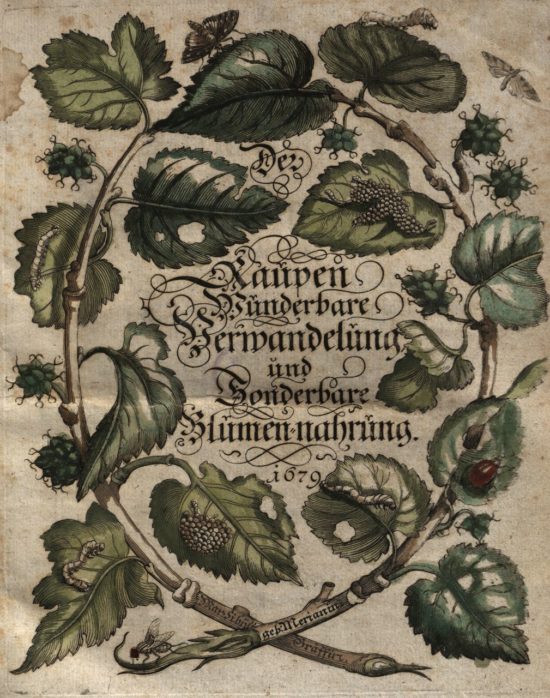 Der
Raupen
Wunderbare
Verwandelung,
und
Sonderbare
Blumen-nahrung.
1679
geb. Merianin
Graffin